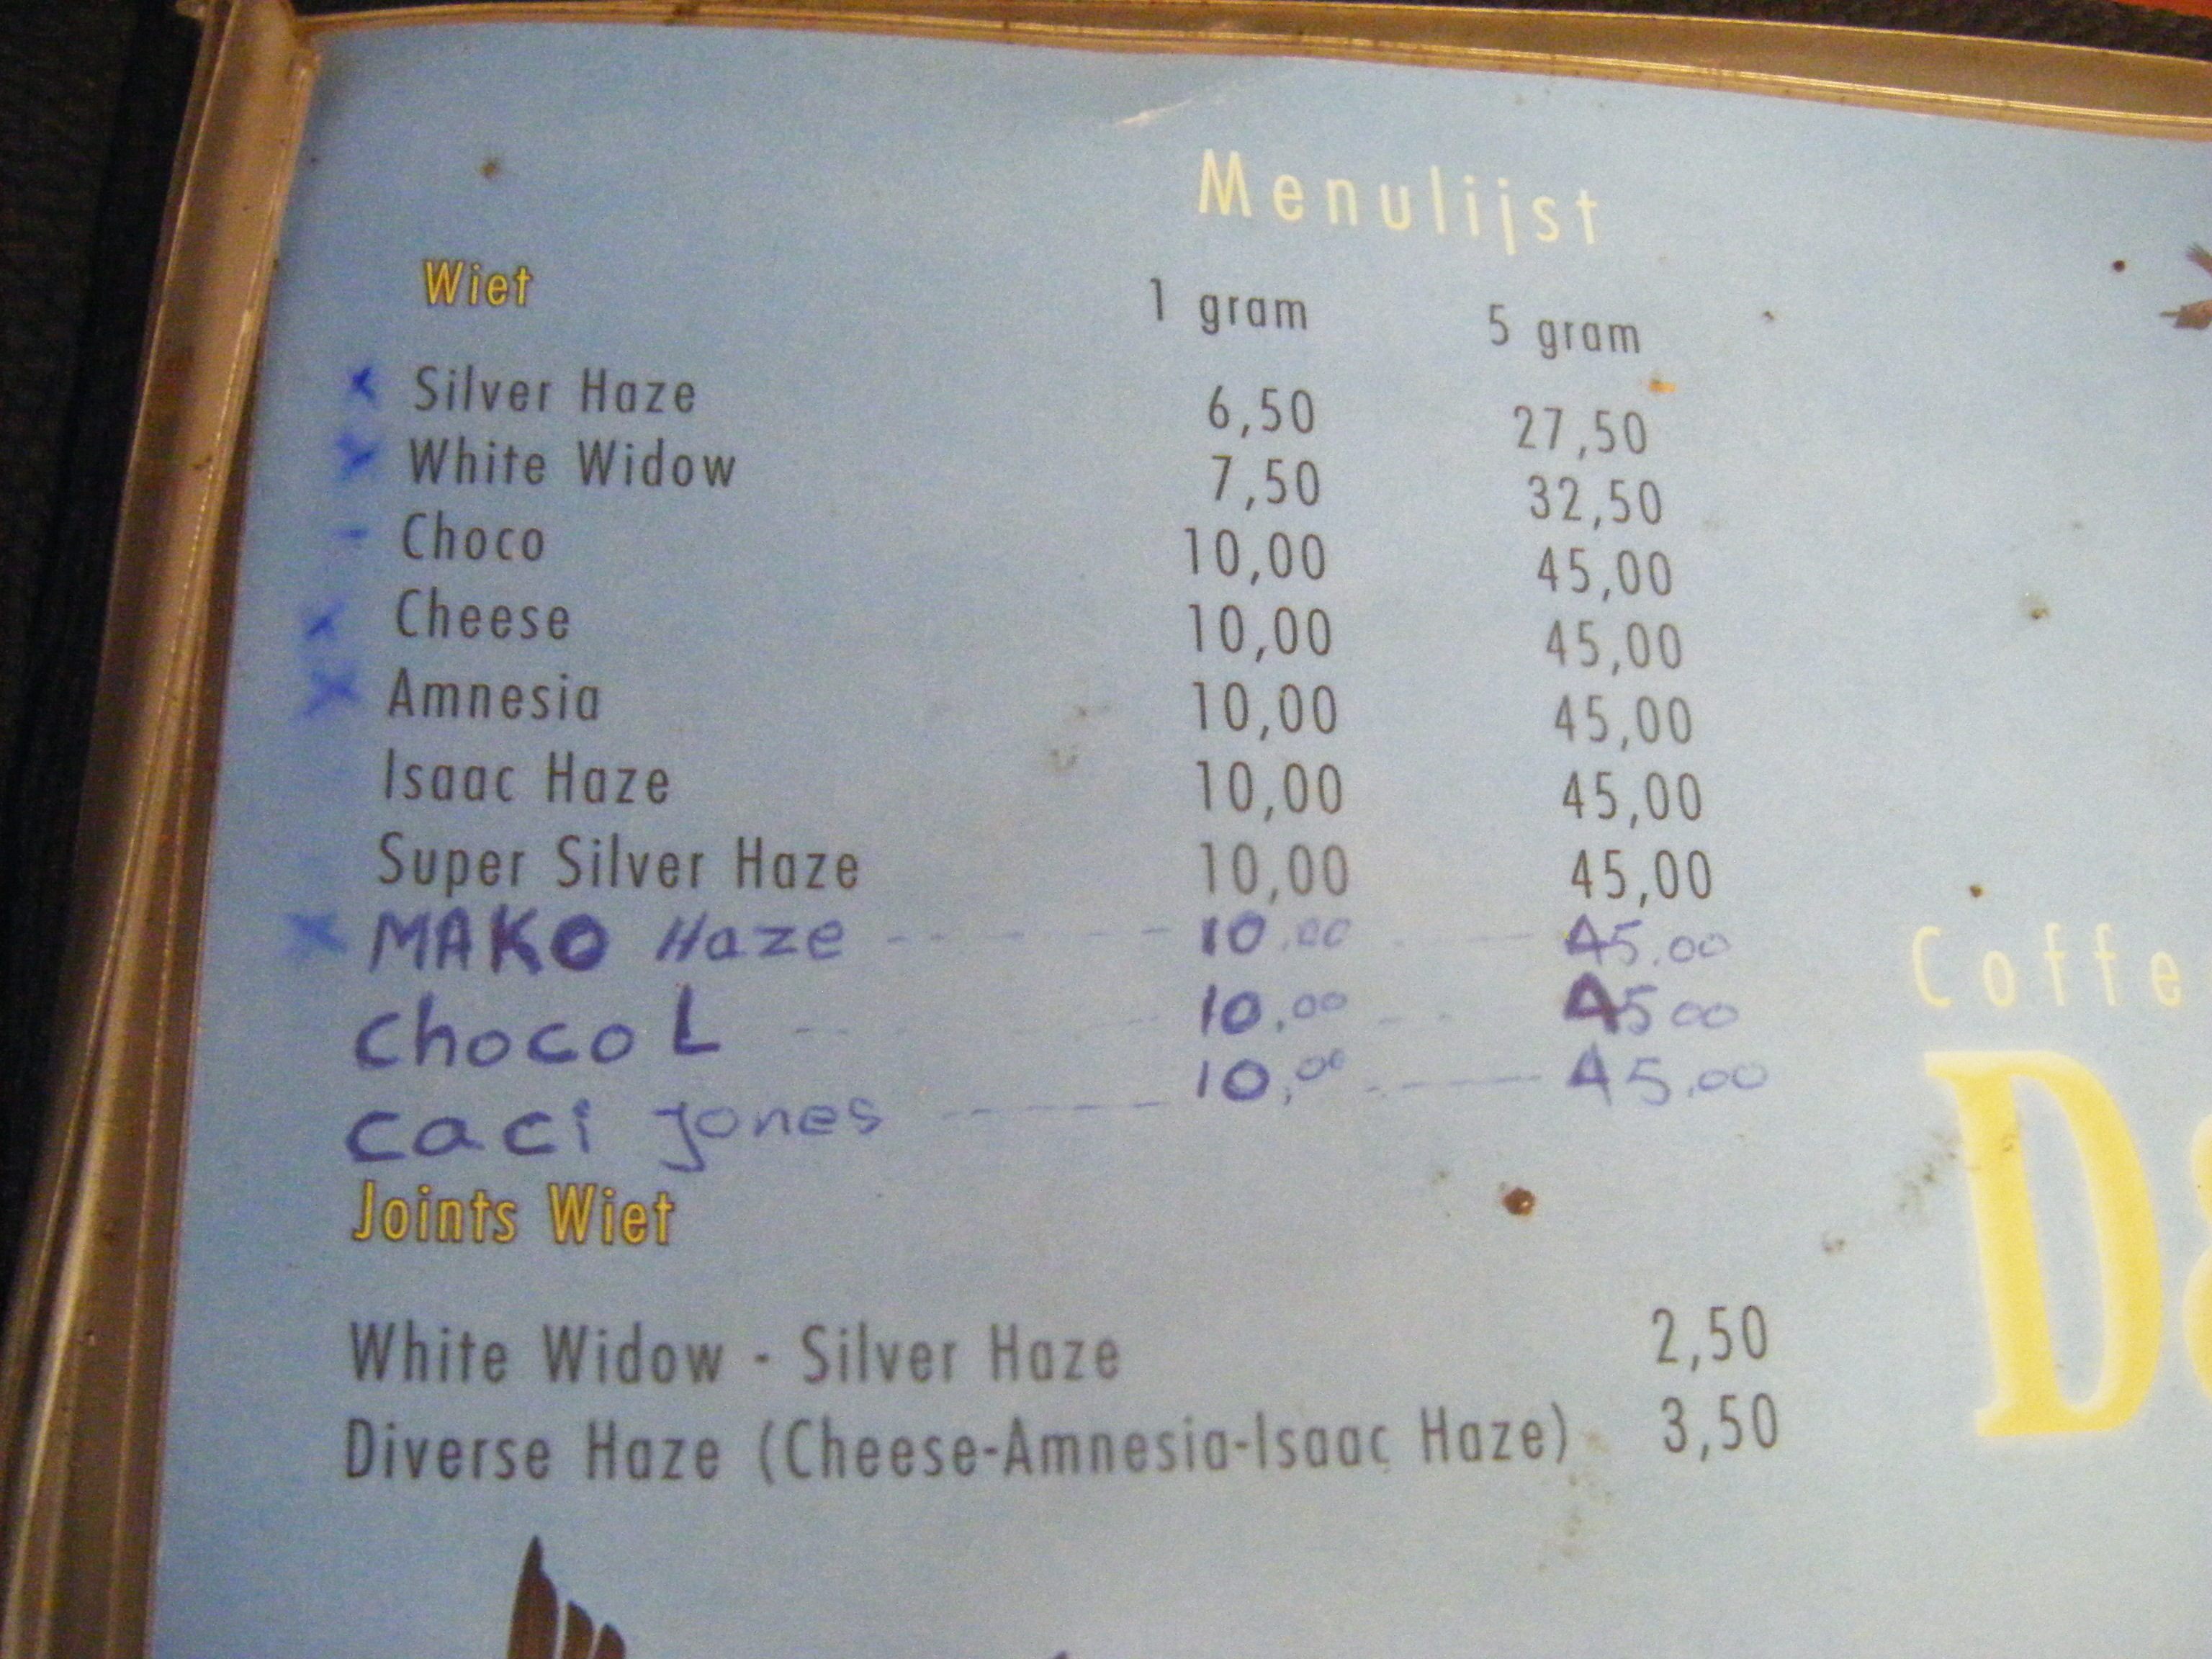 Menulijst
Wiet 1 gram 5 gram
x Silver Haze 6,50 27,50
x White Widow 7,50 32,50
- Choco 10,00 45,00
x Cheese 10,00 45,00
x Amnesia 10,00 45,00
Isaac Haze 10,00 45,00
Super Silver Haze 10,00 45,00
x MAKO Haze 10.00 45.00
Choco L 10.00 45 00
caci jones 10.00 45.00
Coffe
D
Joints Wiet
White Widow - Silver Haze 2,50
Diverse Haze (Cheese-Amnesia-Isaac Haze) 3,50